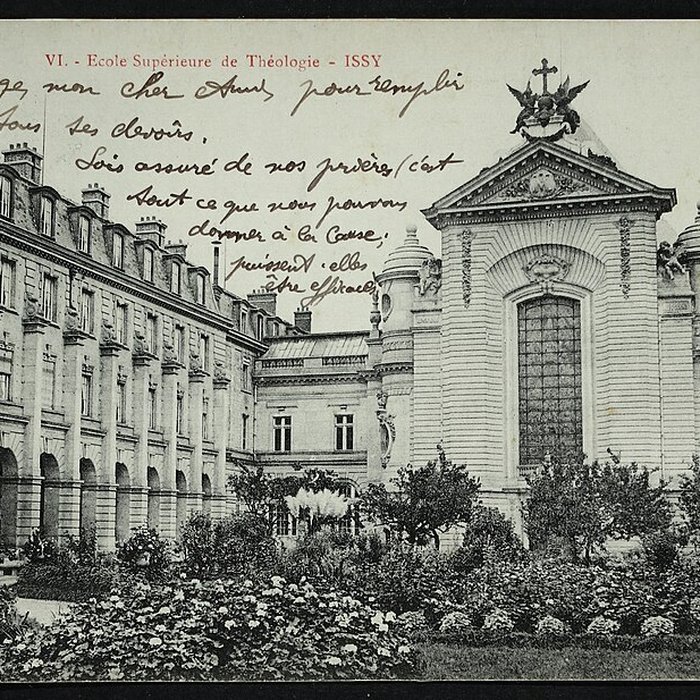 VI. - Ecole Supérieure de Théologie - ISSY
mon cher Ami, pour remplir
tous ses devoirs.
Sois assuré de nos prières (c'est
tout ce que nous pouvons
donner à la Cause;
puissent-elles
être efficaces